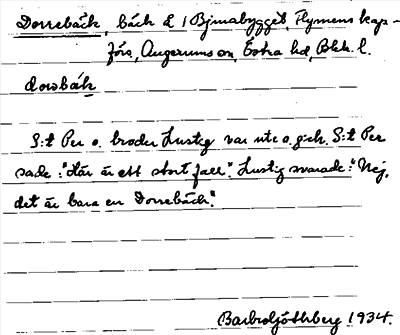 Dorrebäck, bäck L 1 Björnabygget, Flymens kap-
förs, Augerums sn, Östra hd, Blek. l.
dorəbäk
S:t Per o. broder Lustig var ute o. gick. S:t Per
sade: "Här är ett stort fall". Lustig svarade: "Nej,
det är bara en Dorrebäck".
1934.